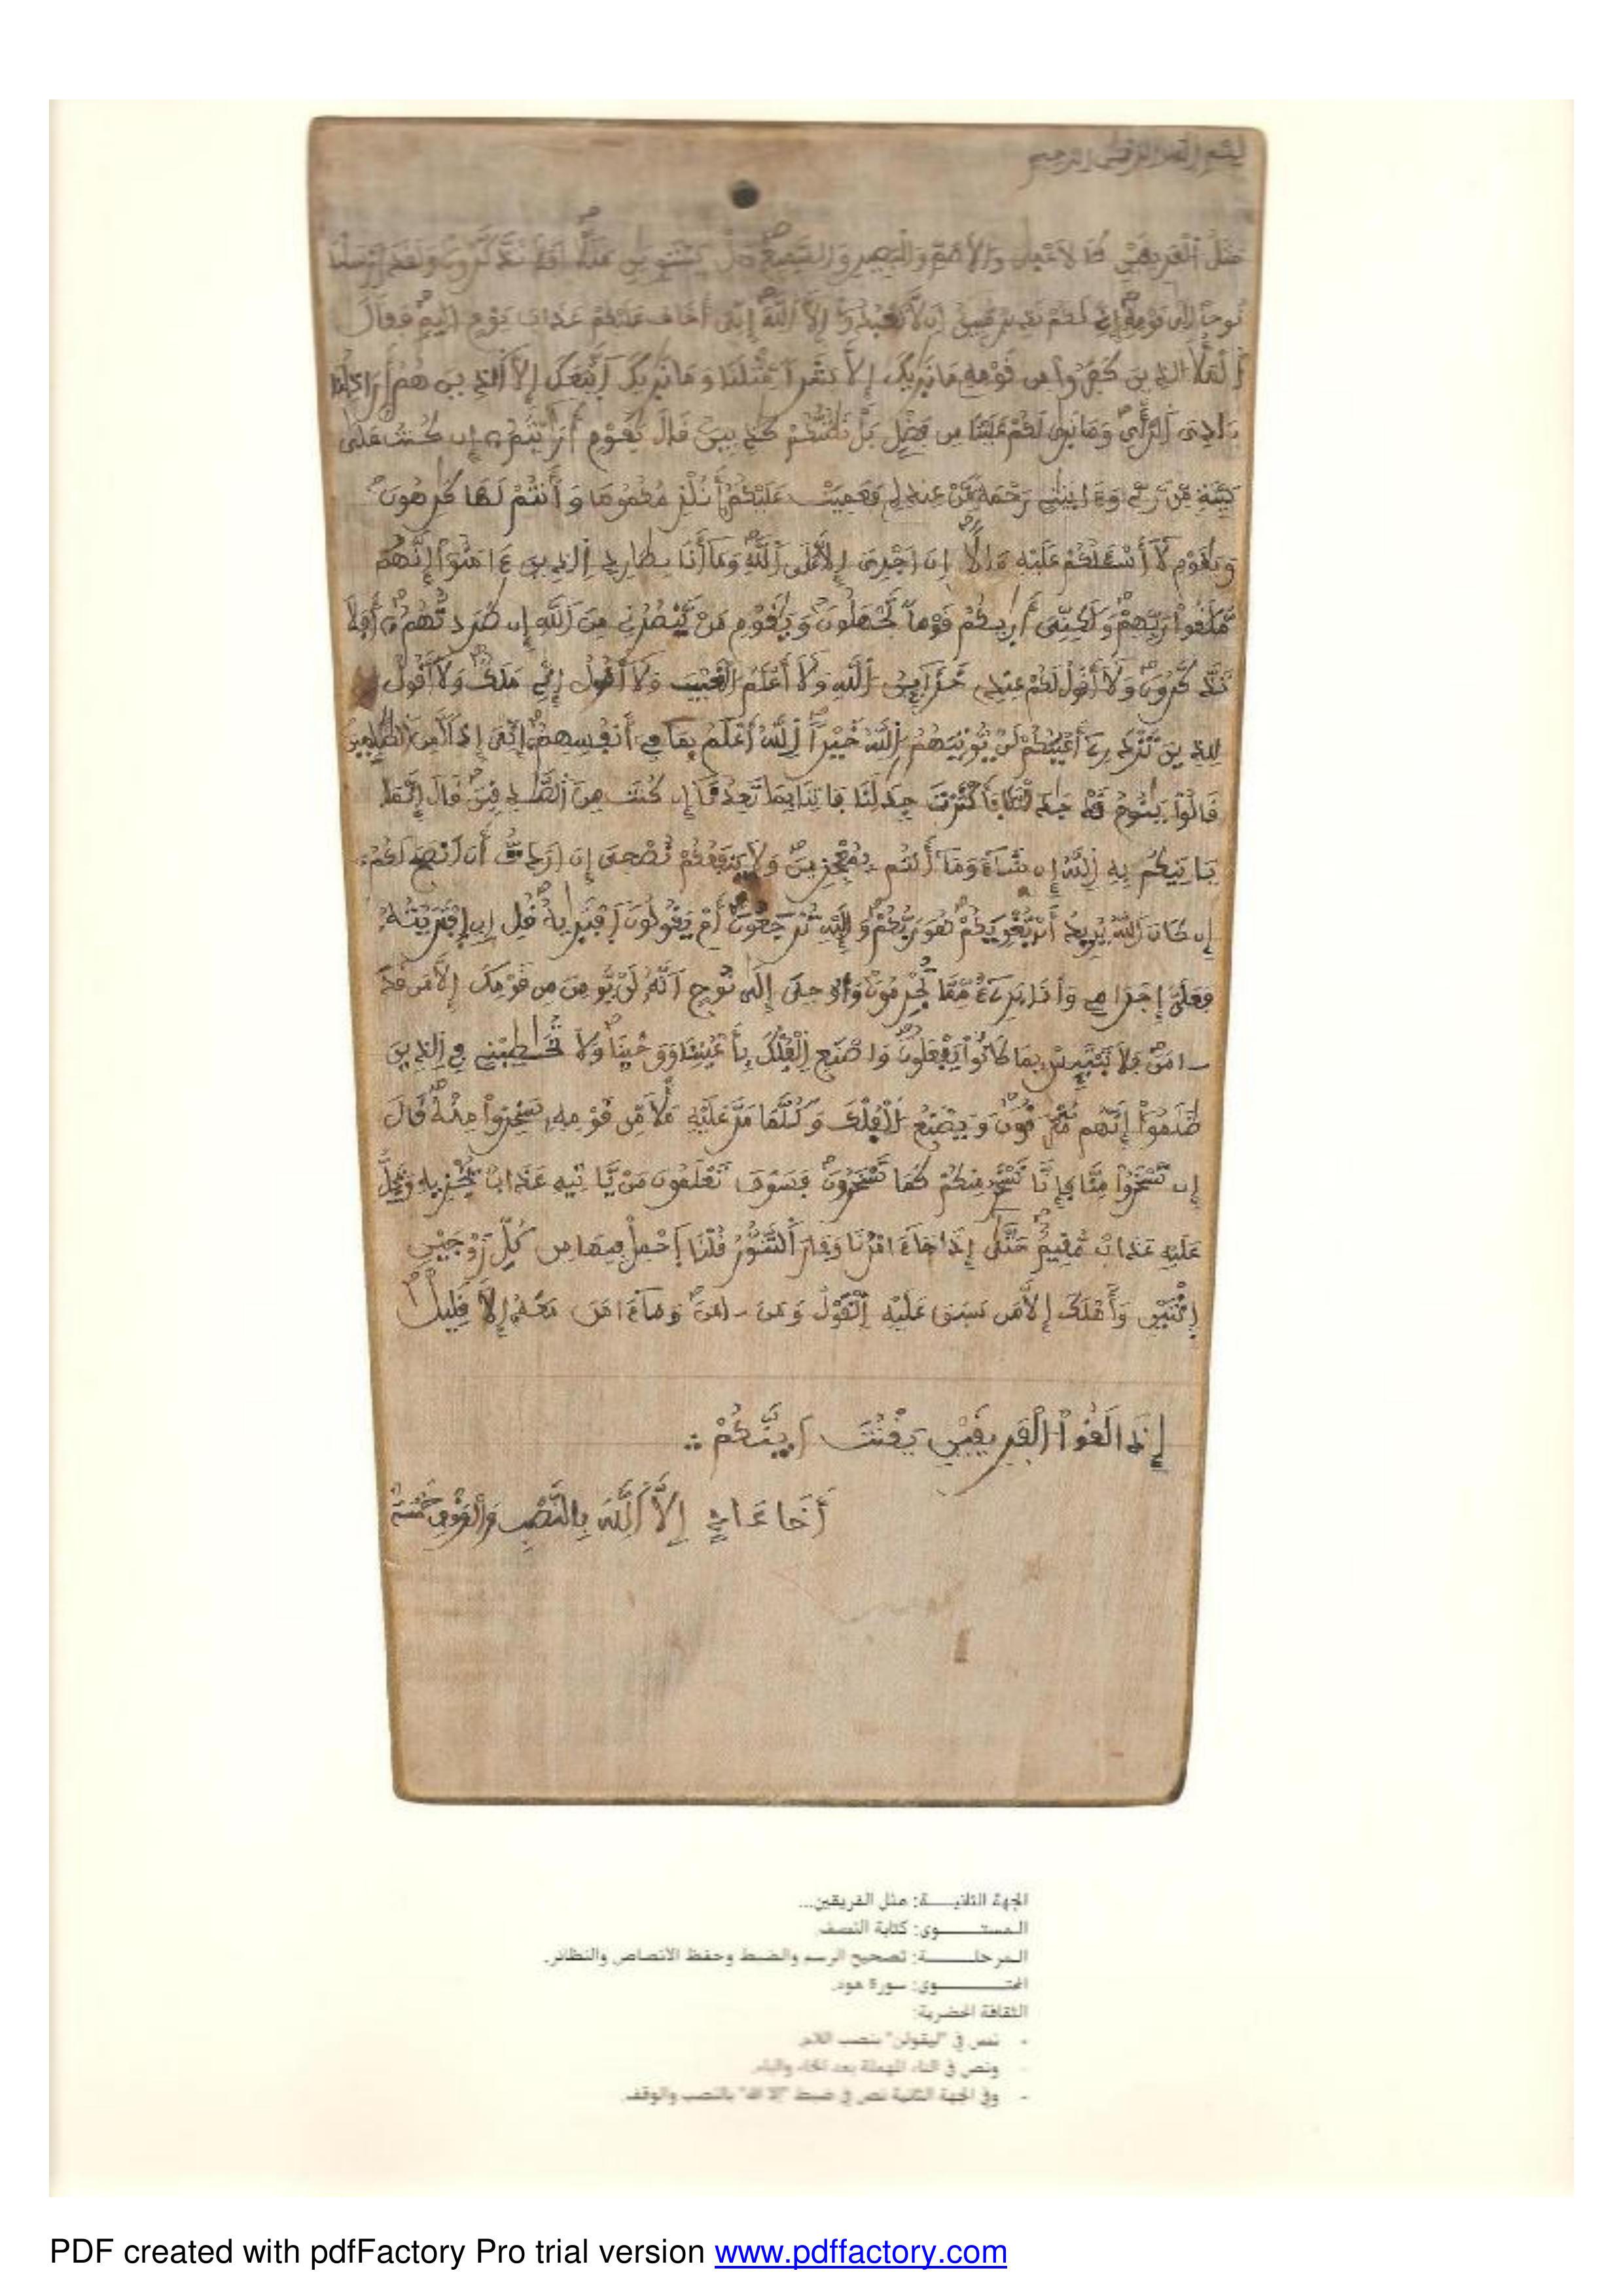 بسم الله الرحمن الرحيم
مَثَلُ اُلْفَرِيقَيْنِ كَالَاعْمىٰ وَالَاصَمِّ وَالْبَصِيرِ وَالسَّمِيعِ هَلْ يَسْتَوِيَٰنِ مَثَلًا اَفَلَا تَذَّكَّرُونَ وَلَقَدَ اَرْسَلْنَا
نُوحاً اِلَىٰ قَوْمِهِ إِنِّي لَكُمْ نَذِيرٌ مُّبِينٌ اَن لَّا تَعْبُدُوٓاْ إِلَّا اَللَّهَ إِنِّيَ أَخَافُ عَلَيْكُمْ عَذَابَ يَوْمٍ اَلِيمٍ فَقَالَ
اَلْمَلَأُ الذِينَ كَفَرُواْ مِن قَوْمِهِ مَا نَرَيٰكَ إِلَّا بَشَراً مِّثْلَنَا وَمَا نَرَيٰكَ اَتَّبَعَكَ إِلَّا اَلذِينَ هُمُ أَرَاذِلُنَا
بَادِيَ اَلرَّأْيِ وَمَا نَرَىٰ لَكُمْ عَلَيْنَا مِن فَضْلٍ بَلْ نَظُنُّكُمْ كَٰذِبِينَ قَالَ يَٰقَوْمِ أَرَٰيْتُمُ إِن كُنتُ عَلَىٰ
بَيِّنَةٍ مِّن رَّبِّي وَءَاتَيٰنِي رَحْمَةً مِّنْ عِندِهِ فَعَمِيَتْ عَلَيْكُمُ أَنُلْزِمُكُمُوهَا وَأَنتُمْ لَهَا كَٰرِهُونَ
وَيَٰقَوْمِ لَا أَسْـَٔلُكُمْ عَلَيْهِ مَالًا اِنَ اَجْرِيَ إِلَّا عَلَى اَللَّهِ وَمَا أَنَا بِطَارِدِ اِلذِينَ ءَامَنُواْ إِنَّهُم
مُّلَٰقُواْ رَبِّهِمْ وَلَٰكِنِّيَ أَرَيٰكُمْ قَوْماً تَجْهَلُونَ وَيَٰقَوْمِ مَنْ يَّنصُرُنِي مِنَ اَللَّهِ إِن طَرَدتُّهُمُ أَفَلَا
تَذَّكَّرُونَ وَلَا أَقُولُ لَكُمْ عِندِي خَزَائِنُ اُللَّهِ وَلَا أَعْلَمُ الْغَيْبَ وَلَا أَقُولُ إِنِّي مَلَكٌ وَلَا أَقُولُ
لِلذِينَ تَزْدَرِي أَعْيُنُكُمْ لَنْ يُّوتِيَهُمُ اُللَّهُ خَيْراً اِللَّهُ أَعْلَمُ بِمَا فِي أَنفُسِهِمُ إِنِّيَ إِذاً لَّمِنَ اَلظَّٰلِمِينَ
قَالُواْ يَٰنُوحُ قَدْ جَٰدَلْتَنَا فَأَكْثَرْتَ جِدَٰلَنَا فَاتِنَا بِمَا تَعِدُنَا إِن كُنتَ مِنَ اَلصَّٰدِقِينَ قَالَ إِنَّمَا
يَاتِيكُم بِهِ اِللَّهُ إِن شَاءَ وَمَا أَنتُم بِمُعْجِزِينَ وَلَا يَنفَعُكُمْ نُصْحِيَ إِنَ اَرَدتُّ أَنَ اَنصَحَ لَكُمُ
إِن كَانَ اَللَّهُ يُرِيدُ أَنْ يُّغْوِيَكُمْ هُوَ رَبُّكُمْ وَإِلَيْهِ تُرْجَعُونَ أَمْ يَقُولُونَ اَفْتَرَيٰهُ قُلِ اِنِ اِفْتَرَيْتُهُ
فَعَلَيَّ إِجْرَامِي وَأَنَا بَرِيءٌ مِّمَّا تُجْرِمُونَ وَأُوحِيَ إِلَىٰ نُوحٍ اَنَّهُ لَنْ يُّومِنَ مِن قَوْمِكَ إِلَّا مَن قَدَ
ـامَنَ فَلَا تَبْتَئِسْ بِمَا كَانُواْ يَفْعَلُونَ وَاصْنَعِ اِلْفُلْكَ بِأَعْيُنِنَا وَوَحْيِنَا وَلَا تُخَٰطِبْنِي فِي اِلذِينَ
ظَلَمُواْ إِنَّهُم مُّغْرَقُونَ وَيَصْنَعُ اُلْفُلْكَ وَكُلَّمَا مَرَّ عَلَيْهِ مَلَأٌ مِّن قَوْمِهِ سَخِرُواْ مِنْهُ قَالَ
إِن تَسْخَرُواْ مِنَّا فَإِنَّا نَسْخَرُ مِنكُمْ كَمَا تَسْخَرُونَ فَسَوْفَ تَعْلَمُونَ مَنْ يَّاتِيهِ عَذَابٌ يُخْزِيهِ وَيَحِلُّ
عَلَيْهِ عَذَابٌ مُّقِيمٌ حَتَّىٰ إِذَا جَاءَ امْرُنَا وَفَارَ اَلتَّنُّورُ قُلْنَا اَحْمِلْ فِيهَا مِن كُلِّ زَوْجَيْنِ
اِثْنَيْنِ وَأَهْلَكَ إِلَّا مَن سَبَقَ عَلَيْهِ اِلْقَوْلُ وَمَنَ ـامَنَ وَمَا ءَامَنَ مَعَهُ إِلَّا قَلِيلٌ
إِلَّا اَللَّهَ بِالنَّصْبِ وَالْوَقْفِ
الجهة الثانيــــة: مثل الفريقين...
المستـــــــوى: كتابة النصف
المرحلـــــــة: تصحيح الرسم والضبط وحفظ الأنصاص والنظائر.
المحتـــــــوى: سورة هود.
الثقافة الحضرية:
- نص في "ليقولن" بنصب اللام.
- ونص في التاء المهملة بعد الخاء والياء.
- وفي الجهة الثانية نص في ضبط "إلا الله" بالنصب والوقف.
PDF created with pdfFactory Pro trial version www.pdffactory.com